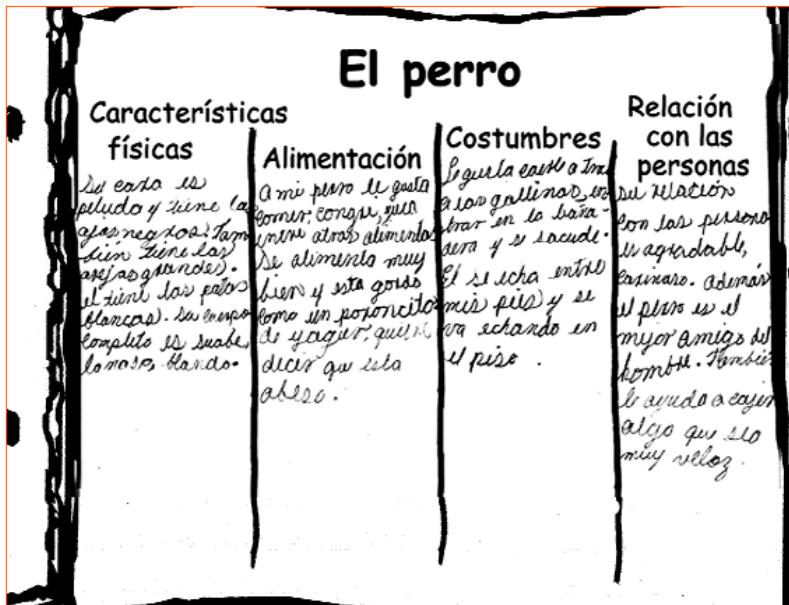 El perro
Características
físicas
Su cara es
peluda y tiene los
ojos negros. Tam
bien tiene las
orejas grandes.
el tiene las patas
blancas. Su cuerpo
completo es suabe,
blando.
Alimentación
A mi perro le gusta
comer; congri,
entre otros alimentos
Se alimenta muy
bien y esta gordo
como un
de yaguer, quiere
decir que esta
obeso.
Costumbres
Le gusta caerle a
a las gallinas, en
trar en la baña-
dera y se sacude.
El se echa entre
mis pies y se
va echando en
el piso.
Relación
con las
personas
su relación
con las persona
es agradable,
cariñaso. además
el perro es el
mejor amigo del
hombre. Tambien
le ayuda a cojer
algo que sea
muy veloz.